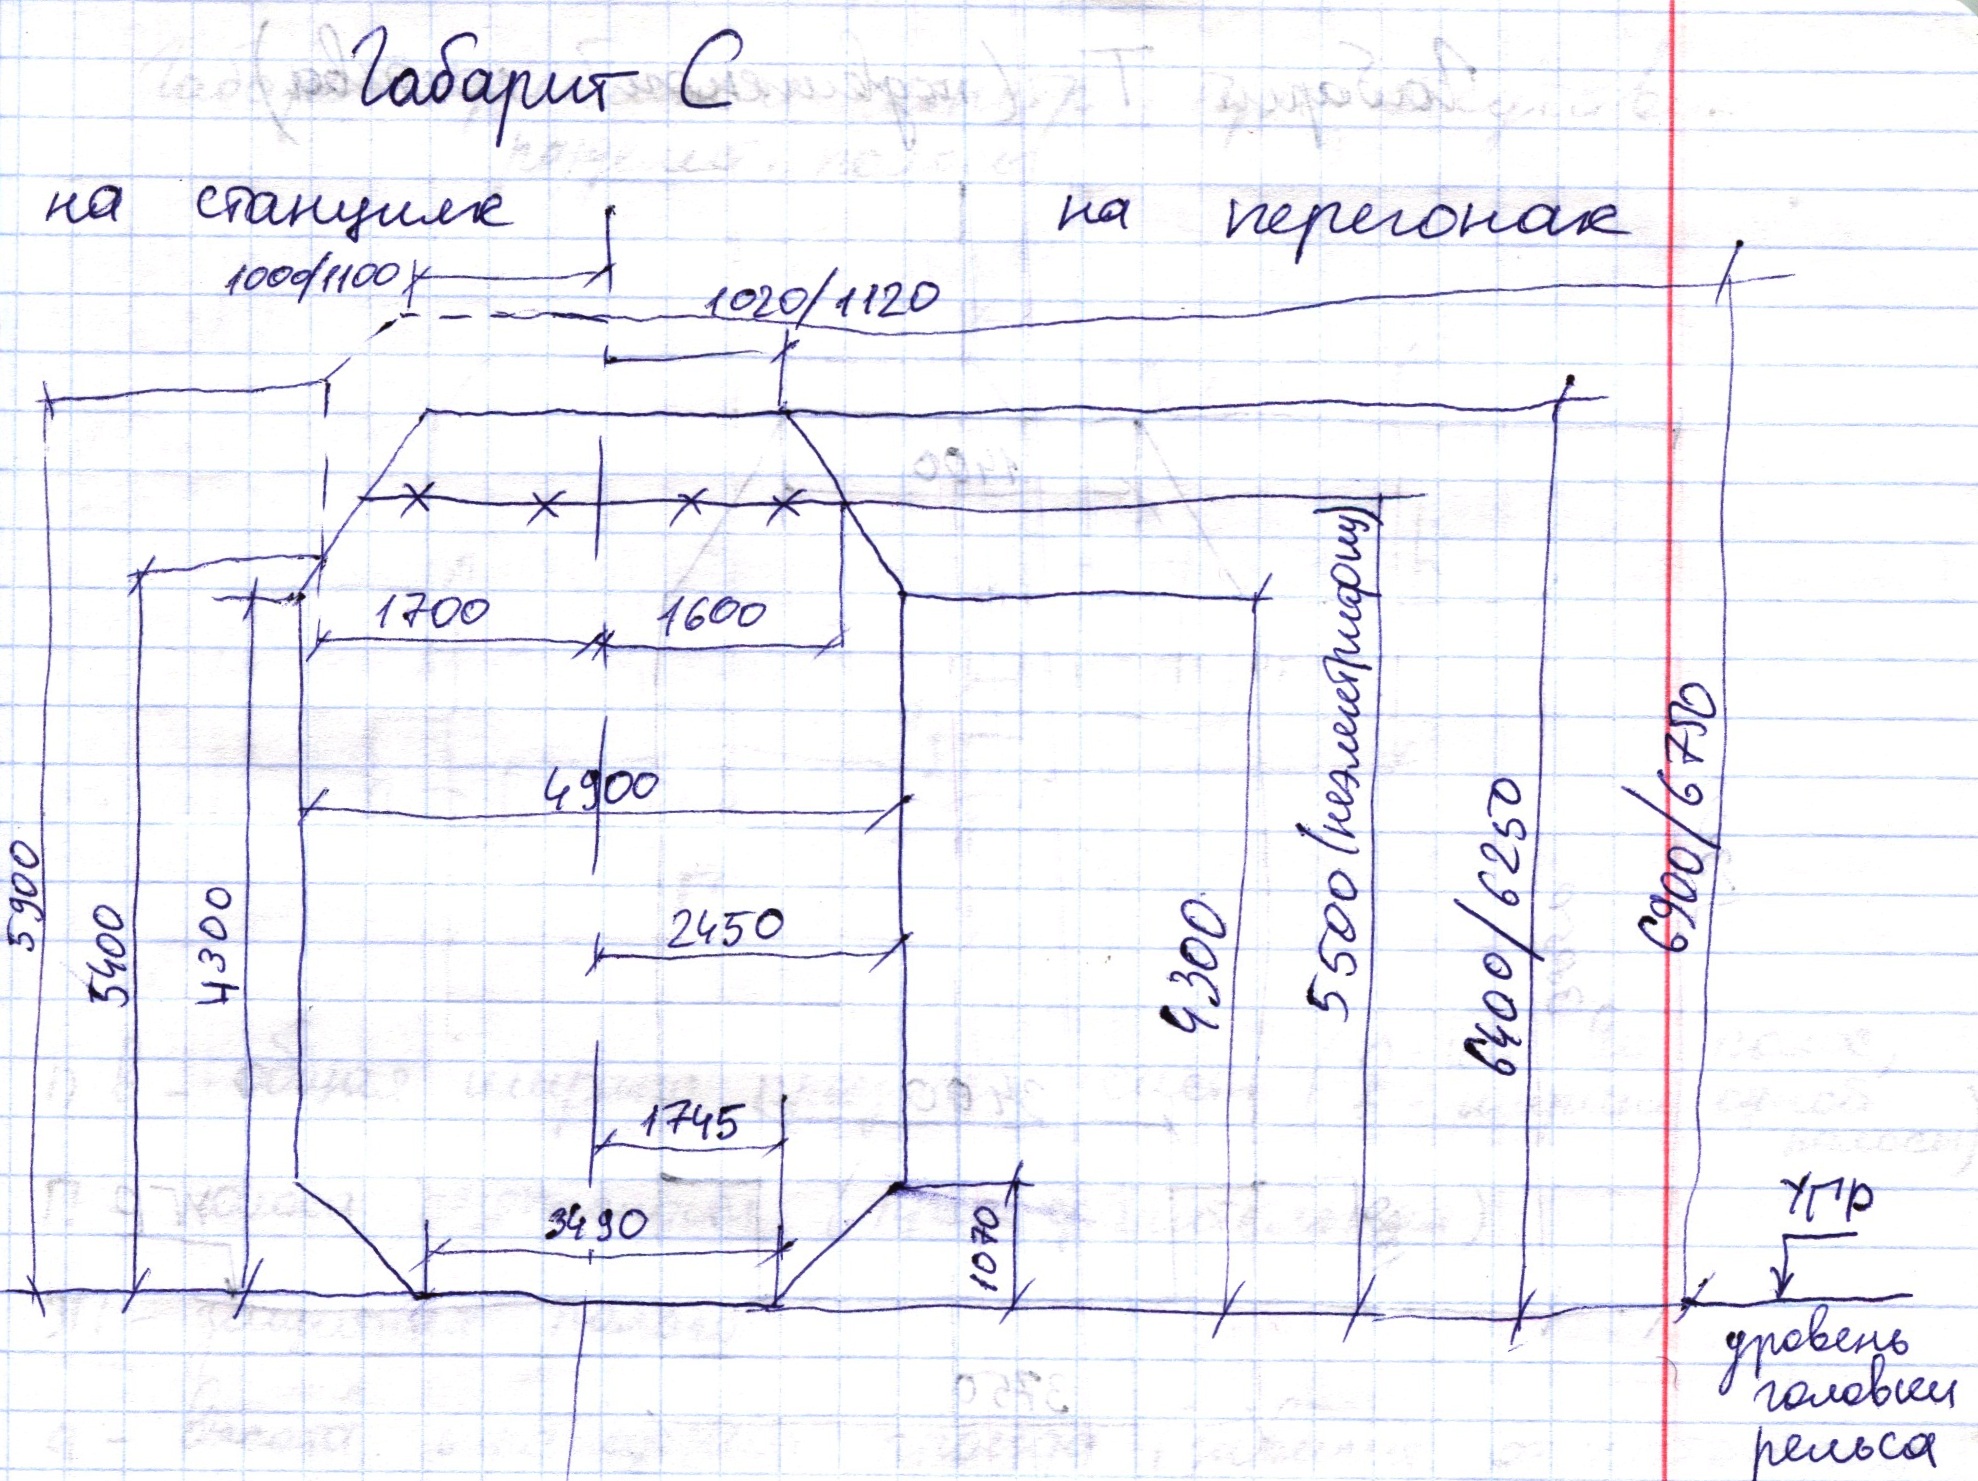 Габарит С
на станциях
на перегонах
1000/1100
1020/1120
1700
1600
4900
2450
1745
3490
1070
5900
5400
4300
4300
5500 (неэлектрифиц)
6400/6250
6900/6750
УГР
уровень
головки
рельса